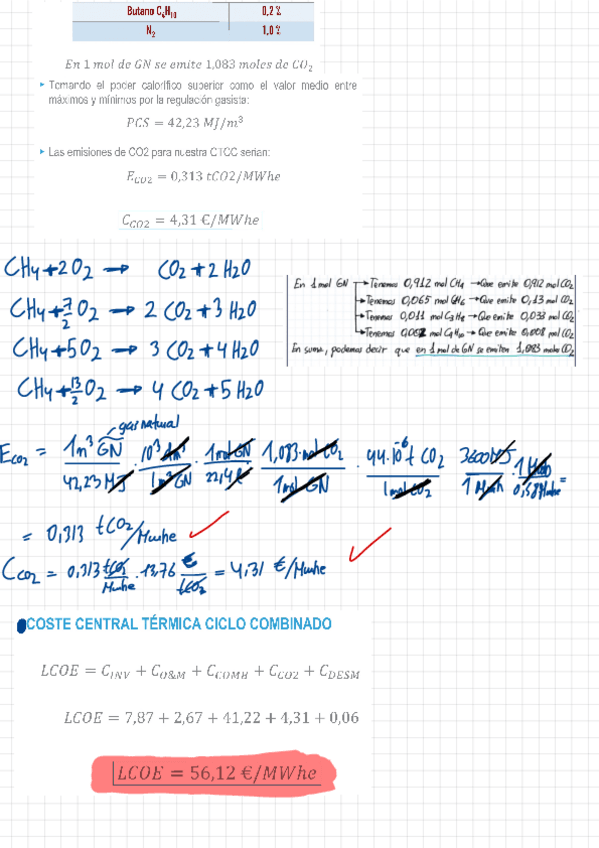 Butano C4H10 0,2 %
N2 1,0 %
En 1 mol de GN se emite 1,083 moles de CO2
▸ Tomando el poder calorífico superior como el valor medio entre
máximos y mínimos por la regulación gasista:
PCS = 42,23 MJ/m³
▸ Las emisiones de CO2 para nuestra CTCC serían:
ECO2 = 0,313 tCO2/MWhe
CCO2 = 4,31 €/MWhe
CH4 + 2O2 → CO2 + 2 H2O
CH4 + 7/2 O2 → 2 CO2 + 3 H2O
CH4 + 5O2 → 3 CO2 + 4 H2O
CH4 + 13/2 O2 → 4 CO2 + 5 H2O
En 1 mol GN → Tenemos 0,912 mol CH4 → Que emite 0,912 mol CO2
→ Tenemos 0,065 mol C2H6 → Que emite 0,13 mol CO2
→ Tenemos 0,011 mol C3H8 → Que emite 0,033 mol CO2
→ Tenemos 0,002 mol C4H10 → Que emite 0,008 mol CO2
En suma, podemos decir que en 1 mol de GN se emiten 1,083 moles CO2
gas natural
ECO2 = 1m³ GN/42,23 MJ · 10³ dm³/1m³ GN · 1 mol GN/22,4 ℓ · 1,083 mol CO2/1 mol GN · 44·10⁻⁶ t CO2/1 mol CO2 · 3600 MJ/1 Mwh · 1 Mwh/0,58 Mwhe =
= 0,313 tCO2/Mwhe
CCO2 = 0,313 tCO2/Mwhe · 13,76 €/tCO2 = 4,31 €/Mwhe
COSTE CENTRAL TÉRMICA CICLO COMBINADO
LCOE = CINV + CO&M + CCOMB + CCO2 + CDESM
LCOE = 7,87 + 2,67 + 41,22 + 4,31 + 0,06
LCOE = 56,12 €/MWhe